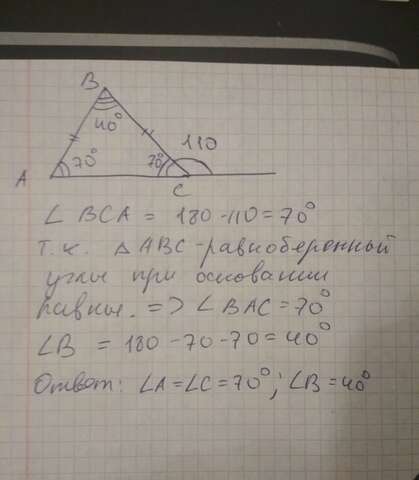 B
40°
110
A
70°
70°
C
∠ BCA = 180 - 110 = 70°
т.к. △ ABC - равноберенный
углы при основании
равны. => ∠ BAC = 70°
∠B = 180 - 70 - 70 = 40°
Ответ: ∠A = ∠C = 70°; ∠B = 40°